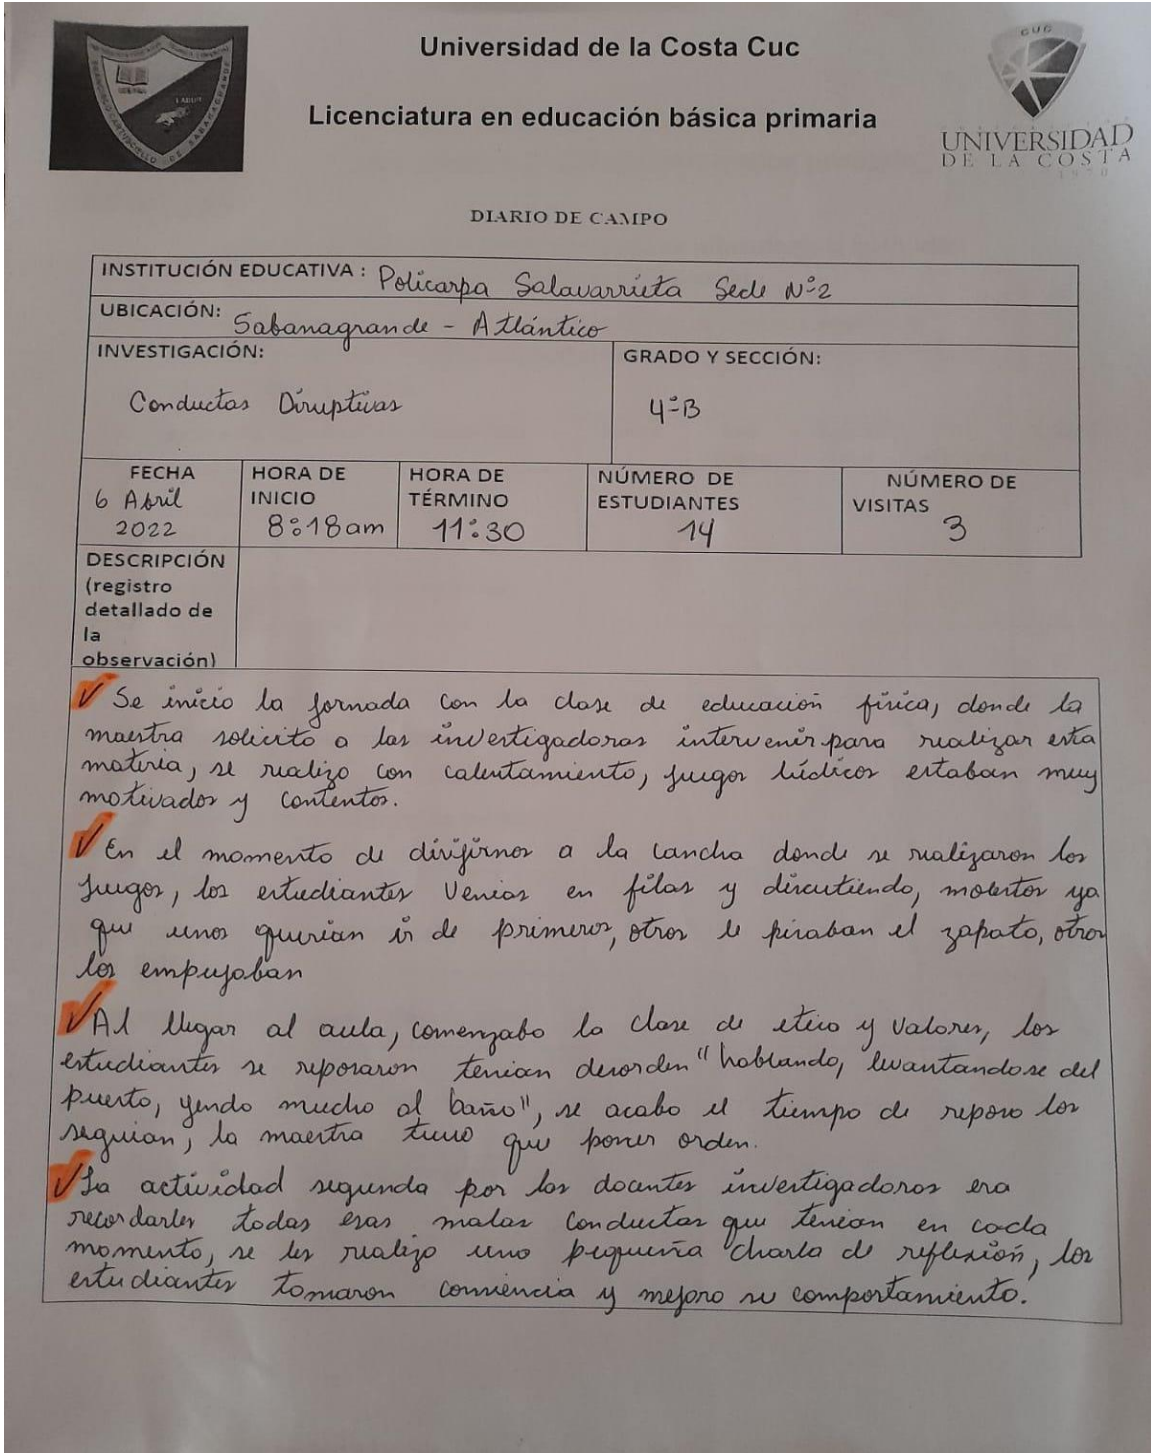 Universidad de la Costa Cuc
Licenciatura en educación básica primaria
CUC
UNIVERSIDAD
DE LA COSTA
1970
DIARIO DE CAMPO
INSTITUCIÓN EDUCATIVA : Policarpa Salavarrieta Sede N°2
UBICACIÓN: Sabanagrande - Atlántico
INVESTIGACIÓN:
Conductas Diruptivas
GRADO Y SECCIÓN:
4°B
FECHA
6 Abril
2022
HORA DE
INICIO
8:18am
HORA DE
TÉRMINO
11:30
NÚMERO DE
ESTUDIANTES
14
NÚMERO DE
VISITAS
3
DESCRIPCIÓN
(registro
detallado de
la
observación)
✓ Se inicio la jornada con la clase de educación física, donde la
maestra solicito a las investigadoras intervenir para realizar esta
materia, se realizo con calentamiento, juegos lúdicos estaban muy
motivados y contentos.
✓ En el momento de dirijirnos a la cancha donde se realizaron los
juegos, los estudiantes venias en filas y discutiendo, molestos ya
que unos querian ir de primeros, otros le pisaban el zapato, otros
los empujaban
✓ Al llegar al aula, comenzabo la clase de etica y valores, los
estudiantes se reposaron tenian desorden "hablando, levantandose del
puesto, yendo mucho al baño", se acabo el tiempo de reposo los
seguian, la maestra tuvo que poner orden.
✓ La actividad segunda por los docentes investigadoros era
recordarles todas esas malas conductas que tenian en cada
momento, se les realizo una pequeña charla de reflexión, los
estudiantes tomaron conciencia y mejoro su comportamiento.